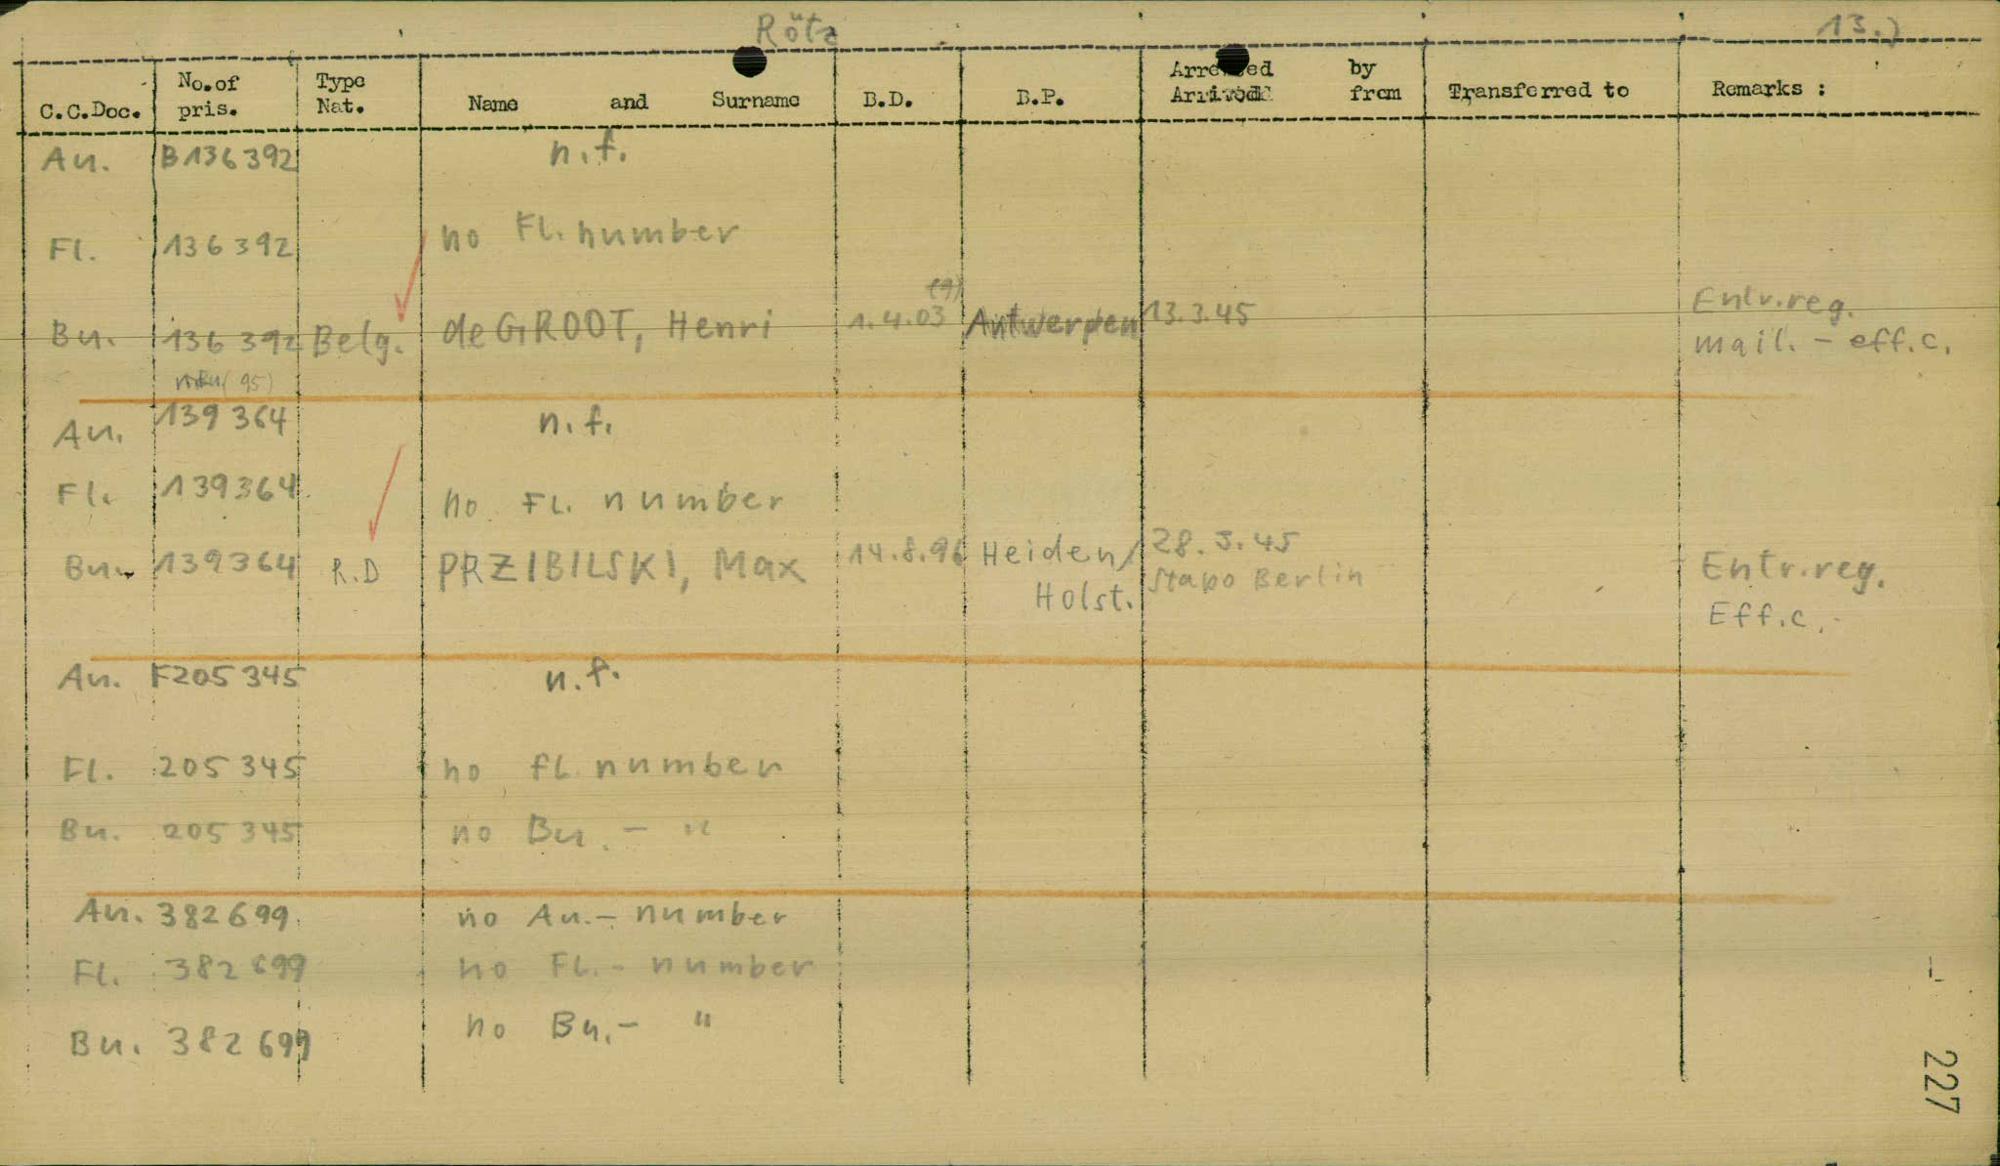 Rötz 13.)
C.C.Doc. No.of pris. Type Nat. Name and Surname B.D. B.P. Arrested by Arrived from Transferred to Remarks :
An. B136392 n.f.
Fl. 136392 no Fl. number
Bu. 136392 Belg. deGROOT, Henri 1.4.03 Antwerpen 13.3.45 Entr.reg.
mail. - eff.c.
An. 139364 n.f.
Fl. 139364 no FL. number
Bu. 139364 R.D PRZIBILSKI, Max 14.8.96 Heiden/ 28.3.45 Entr.reg.
Holst. Stapo Berlin Eff.c.-
An. F205345 n.f.
Fl. 205345 no fl number
Bu. 205345 no Bu. - "
An. 382699 no Au.- number
Fl. 382699 no FL.- number
Bu. 382699 no Bu.- "
227